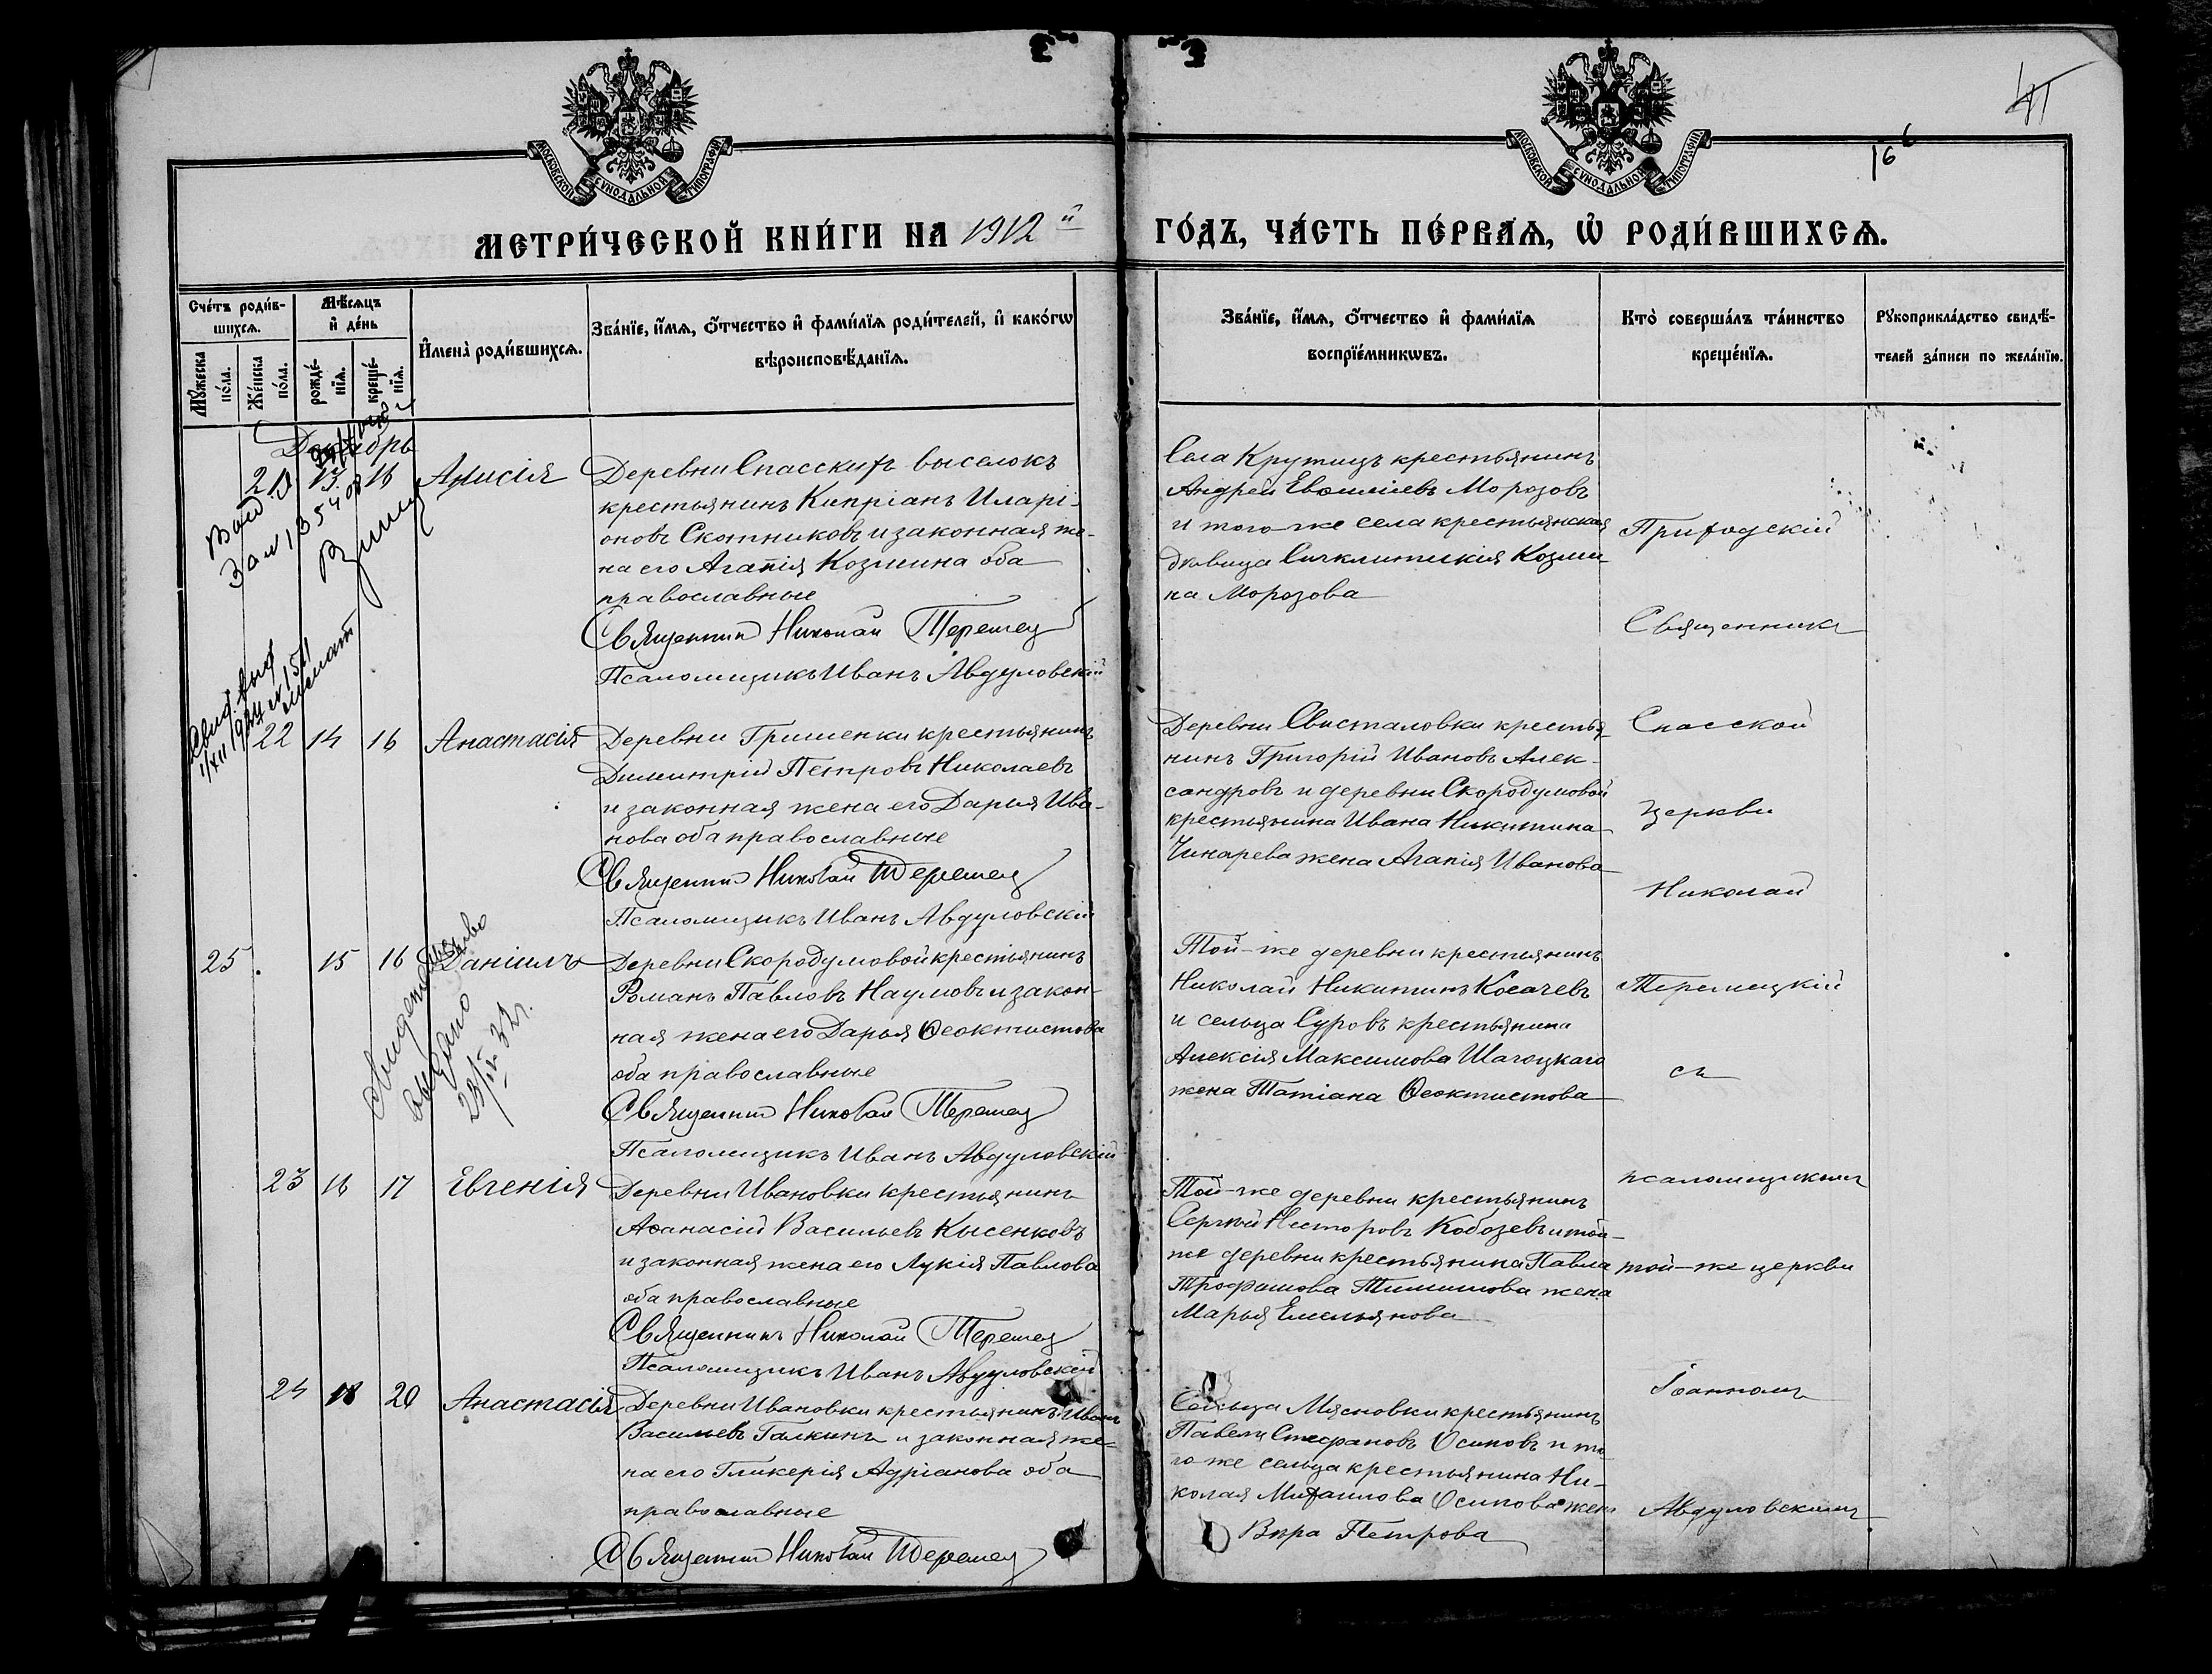 МОСКОВСКОЙ СѴНОДАЛЬНОЙ ТИПОГРАФІИ
МОСКОВСКОЙ СѴНОДАЛЬНОЙ ТИПОГРАФІИ
166
МЕТРИ́ЧЕСКОЙ КНИ́ГИ НА 1912 й
ГО́ДЪ, ЧА́СТЬ ПЕ́РВАѦ, Ѡ҆ РОДИ́ВШИХСѦ.
Сче́тъ роди́в-
шихсѧ.
Мꙋ́жеска по́ла.
Же́нска по́ла.
Мѣ́сѧцъ
и҆ де́нь
рожде́-
нїѧ.
креще́-
нїѧ.
И҆мена̀ роди́вшихсѧ.
Зва́нїе, и҆́мѧ, ѻ҆́тчество и҆ фамилїѧ роди́телей, и҆ како́гѡ
вѣроисповѣ́данїѧ.
Зва́нїе, и҆́мѧ, ѻ҆́тчество и҆ фами́лїѧ
воспрїе́мникѡвъ.
Кто̀ соверша́лъ та́инство
креще́нїѧ.
Рꙋкоприкла́дство свидѣ́-
телей за́писи по жела́нїю.
Декабрь
21 13 16 Анисія
Деревни Спасскихъ выселокъ
крестьянинъ Кипріанъ Иларі-
оновъ Скотниковъ и законная же-
на его Агапія Козмина оба
православные
Священникъ Николай Терешец
Псаломщикъ Иванъ Авдуловскій
Села Крутицъ крестьянинъ
Андрей Морозовъ
и того-же села крестьянская
дѣвица Синклитикія Козми-
на Морозова
Свид. выд.
1/XII 1924 № 1511
22 14 16 Анастасія
Деревни Гришенки крестьянинъ
Димитрій Петровъ Николаевъ
и законная жена его Дарья Ива-
нова оба православные
Священникъ Николай Терешец
Псаломщикъ Иванъ Авдуловскій
Деревни Свисталовки крестья-
нинъ Григорій Ивановъ Алек-
сандровъ и деревни Скородумовой
крестьянина Ивана Никитина
Чинарева жена Агапія Иванова
25 15 16 Даніилъ
Свидетельство
выдано
23/IV 32 г.
Деревни Скородумовой крестьянинъ
Романъ Павловъ Наумовъ и закон-
ная жена его Дарья Ѳеоктистова
оба православные
Священникъ Николай Терешец
Псаломщикъ Иванъ Авдуловскій
Той-же деревни крестьянинъ
Николай Никитинъ Косачевъ
и сельца Суровъ крестьянина
Алексія Максимова Шагоцкаго
жена Татіана Ѳеоктистова
23 16 17 Евгенія
Деревни Ивановки крестьянинъ
Аѳанасій Васильевъ Кысенковъ
и законная жена его Лукія Павлова
оба православные
Священникъ Николай Терешец
Псаломщикъ Иванъ Авдуловскій
Той-же деревни крестьянинъ
Сергѣй Несторовъ Кобозевъ и той-
же деревни крестьянина Павла
Трофимова Тимшова жена
Марья Емельянова
24 18 20 Анастасія
Деревни Ивановки крестьянинъ Иванъ
Васильевъ Галкинъ и законная же-
на его Гликерія Адріанова оба
православные
Священникъ Николай Терешец
Сельца Мясновки крестьянинъ
Павелъ Стефановъ Осиповъ и то-
го же сельца крестьянина Ни-
колая Михаилова Осипова жена
Вѣра Петрова
Приходскій
Священникъ
Спасской
церкви
Николай
Терешецкій
съ
псаломщикомъ
той-же церкви
Іоанномъ
Авдуловскимъ